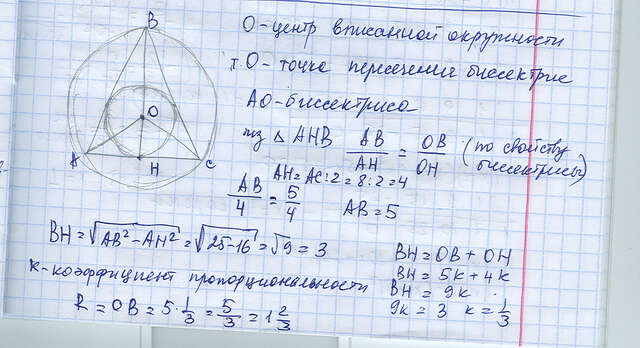 B
O
A
H
C
O - центр вписанной окружности
т. O - точка пересечения биссектрис
AO - биссектриса
из Δ AHB AB/AH = OB/OH (по свойству биссектрисы)
AH = AC:2 = 8:2 = 4
AB/4 = 5/4 AB = 5
BH = √AB² - AH² = √25-16 = √9 = 3
BH = OB + OH
BH = 5k + 4k
BH = 9k
9k = 3 k = 1/3
k - коэффициент пропорциональности
R = OB = 5·1/3 = 5/3 = 1 2/3